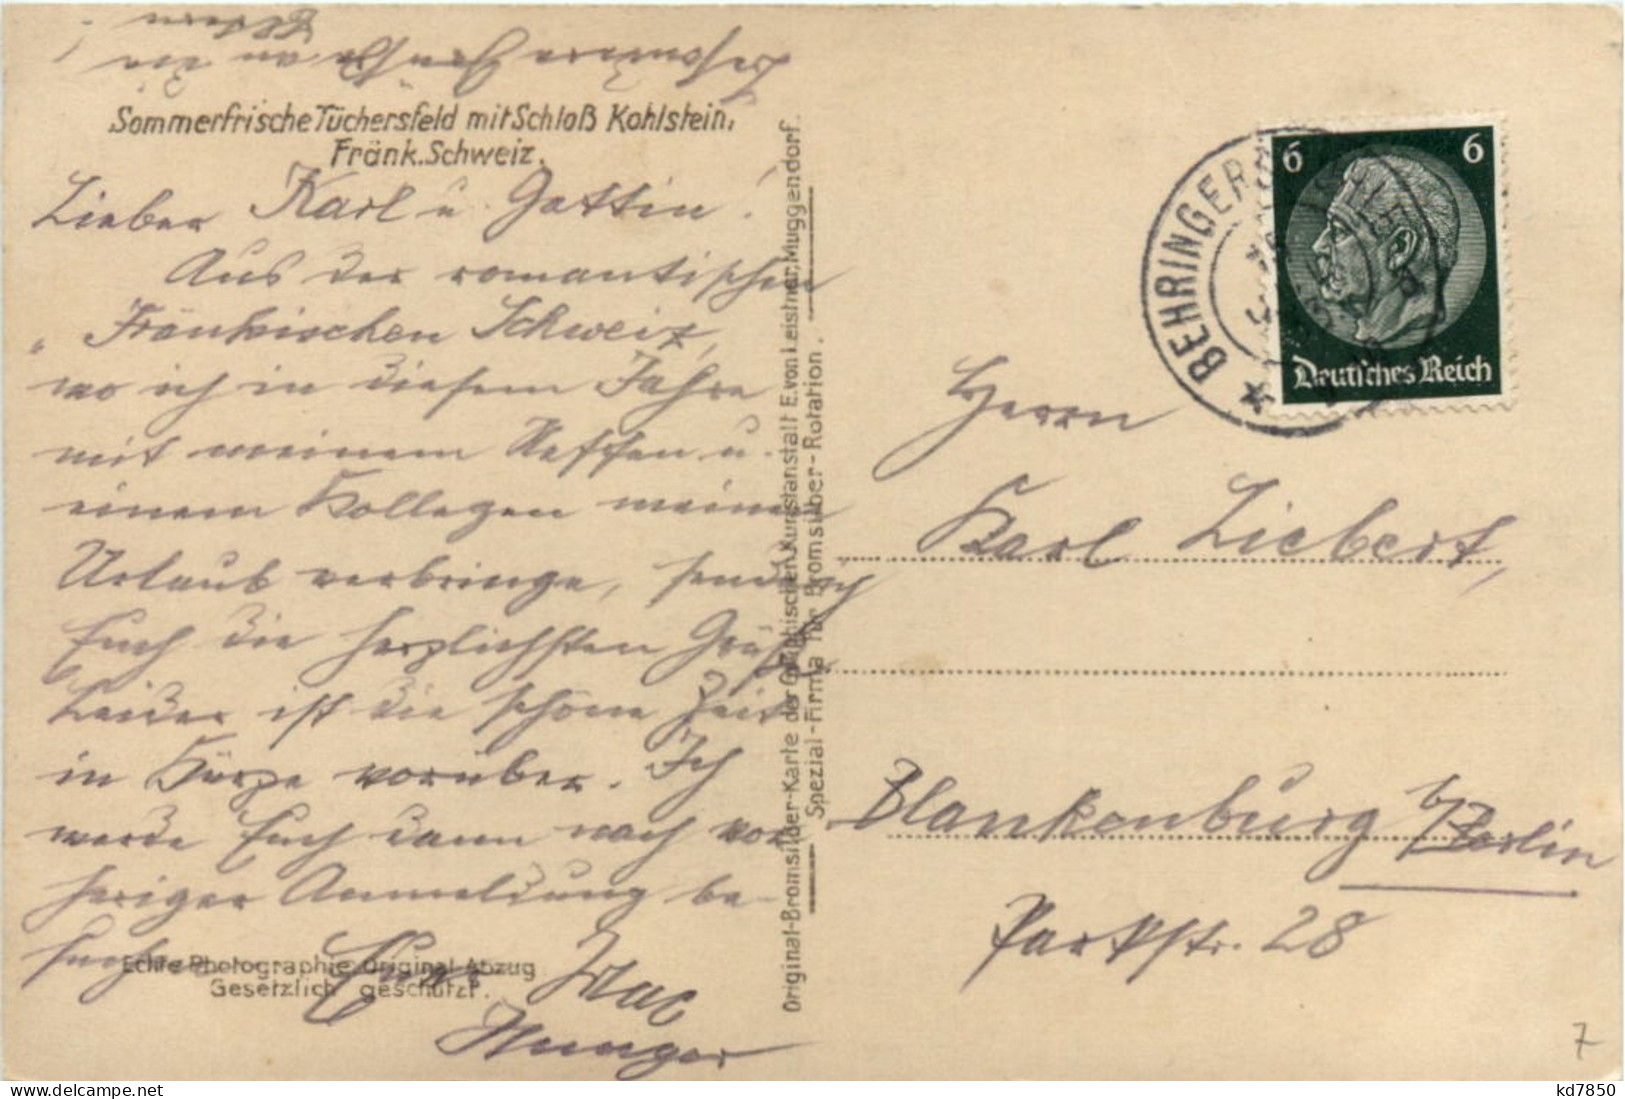 Besondere Grüße an die
Eltern!
Sommerfrische Tüchersfeld mit Schloß Kohlstein,
Fränk. Schweiz.
Lieber Karl u. Gattin!
Aus der romantischen
Fränkischen Schweiz,
wo ich in diesem Jahre
mit meinem Neffen u.
einem Kollegen meinen
Urlaub verbringe, sende ich
Euch die herzlichsten Grüße.
Leider ist die schöne Zeit
in Kürze vorüber. Ich
werde Euch dann nach vor-
heriger Anmeldung be-
suchen. Euer Max
Echte Photographie Original Abzug
Gesetzlich geschützt.
Original-Bromsilber-Karte der Graphischen Kunstanstalt E. von Leistner, Muggendorf.
Spezial-Firma für Bromsilber-Rotation.
BEHRINGER
6 6
Deutsches Reich
Herrn
Karl Liebert,
Blankenburg b/Berlin
Parkstr. 28
7
www.delcampe.net
kd7850